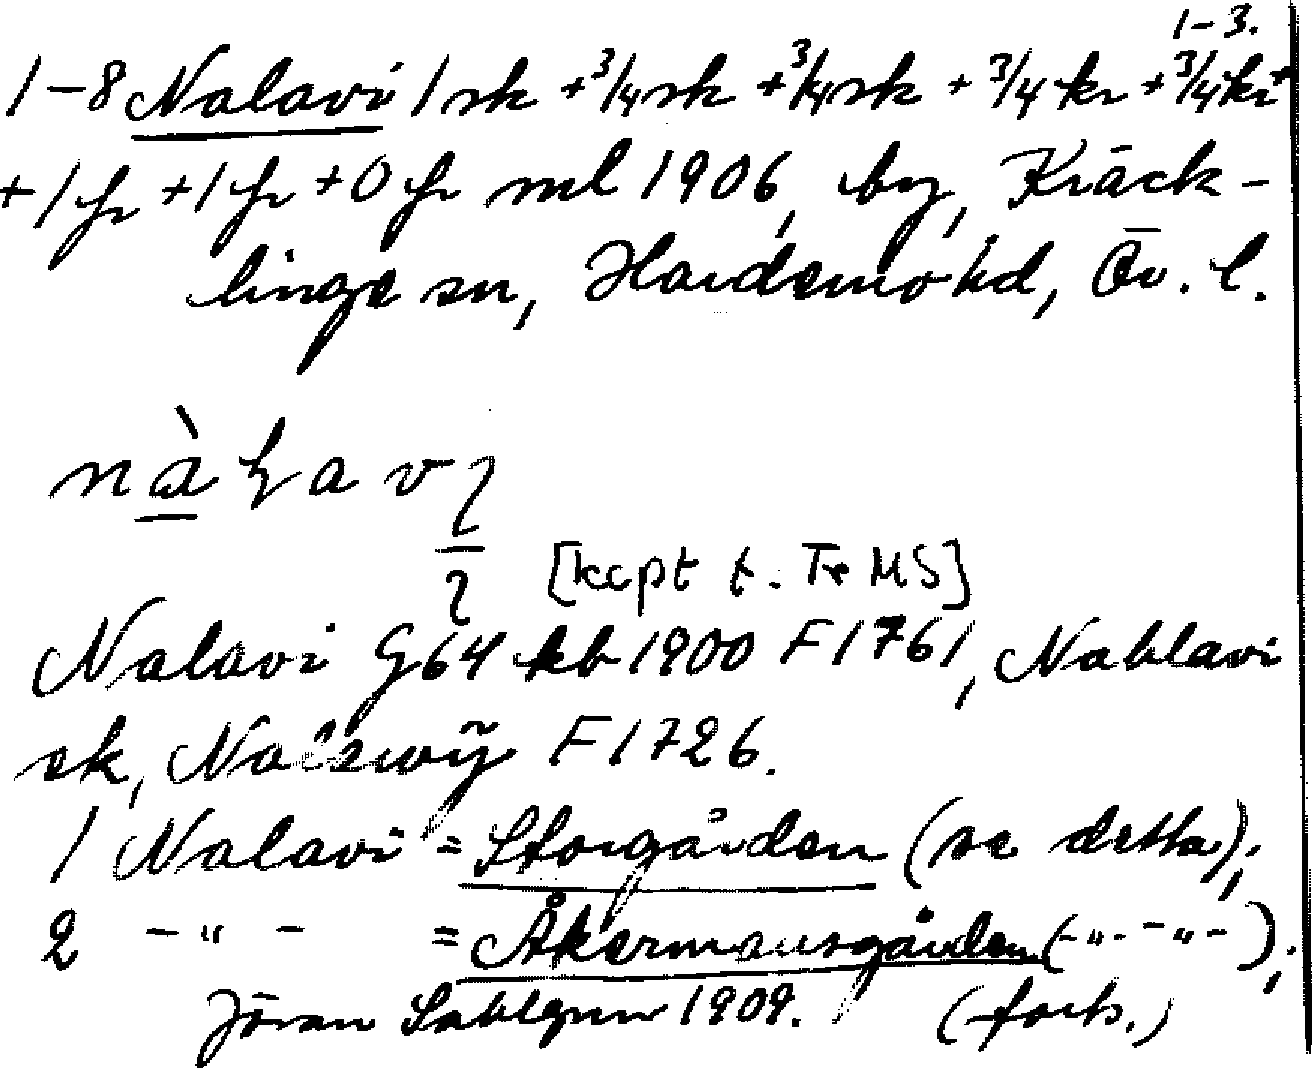 1-3.
1-8 Nalavi 1 sk + 3/4 sk + 3/4 sk + 3/4 kr + 3/4 kr +
+ 1 fr + 1 fr + 0 fr ml 1906, by, Kräck-
linge sn, Hardemo hd, Ör. l.
nàꞎavı
ı
[kopt t. Fr MS]
Nalavi G64 kb 1900 F1761, Nahlavi
sk, F1726.
1 Nalavi = Storgården (se detta);
2 -"- = Åkermansgården (-"- -"-);
Jöran Sahlgren 1909. (forts.)